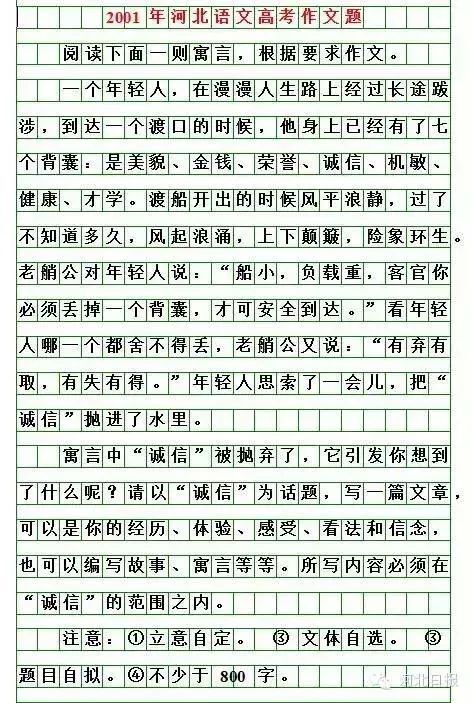 2001年河北语文高考作文题
阅读下面一则寓言，根据要求作文。
一个年轻人，在漫漫人生路上经过长途跋
涉，到达一个渡口的时候，他身上已经有了七
个背囊：是美貌、金钱、荣誉、诚信、机敏、
健康、才学。渡船开出的时候风平浪静，过了
不知道多久，风起浪涌，上下颠簸，险象环生。
老艄公对年轻人说：“船小，负载重，客官你
必须丢掉一个背囊，才可安全到达。”看年轻
人哪一个都舍不得丢，老艄公又说：“有弃有
取，有失有得。”年轻人思索了一会儿，把“
诚信”抛进了水里。
寓言中“诚信”被抛弃了，它引发你想到
了什么呢？请以“诚信”为话题，写一篇文章，
可以是你的经历、体验、感受、看法和信念，
也可以编写故事、寓言等等。所写内容必须在
“诚信”的范围之内。
注意：①立意自定。③文体自选。③
题目自拟。④不少于 800 字。
河北日报